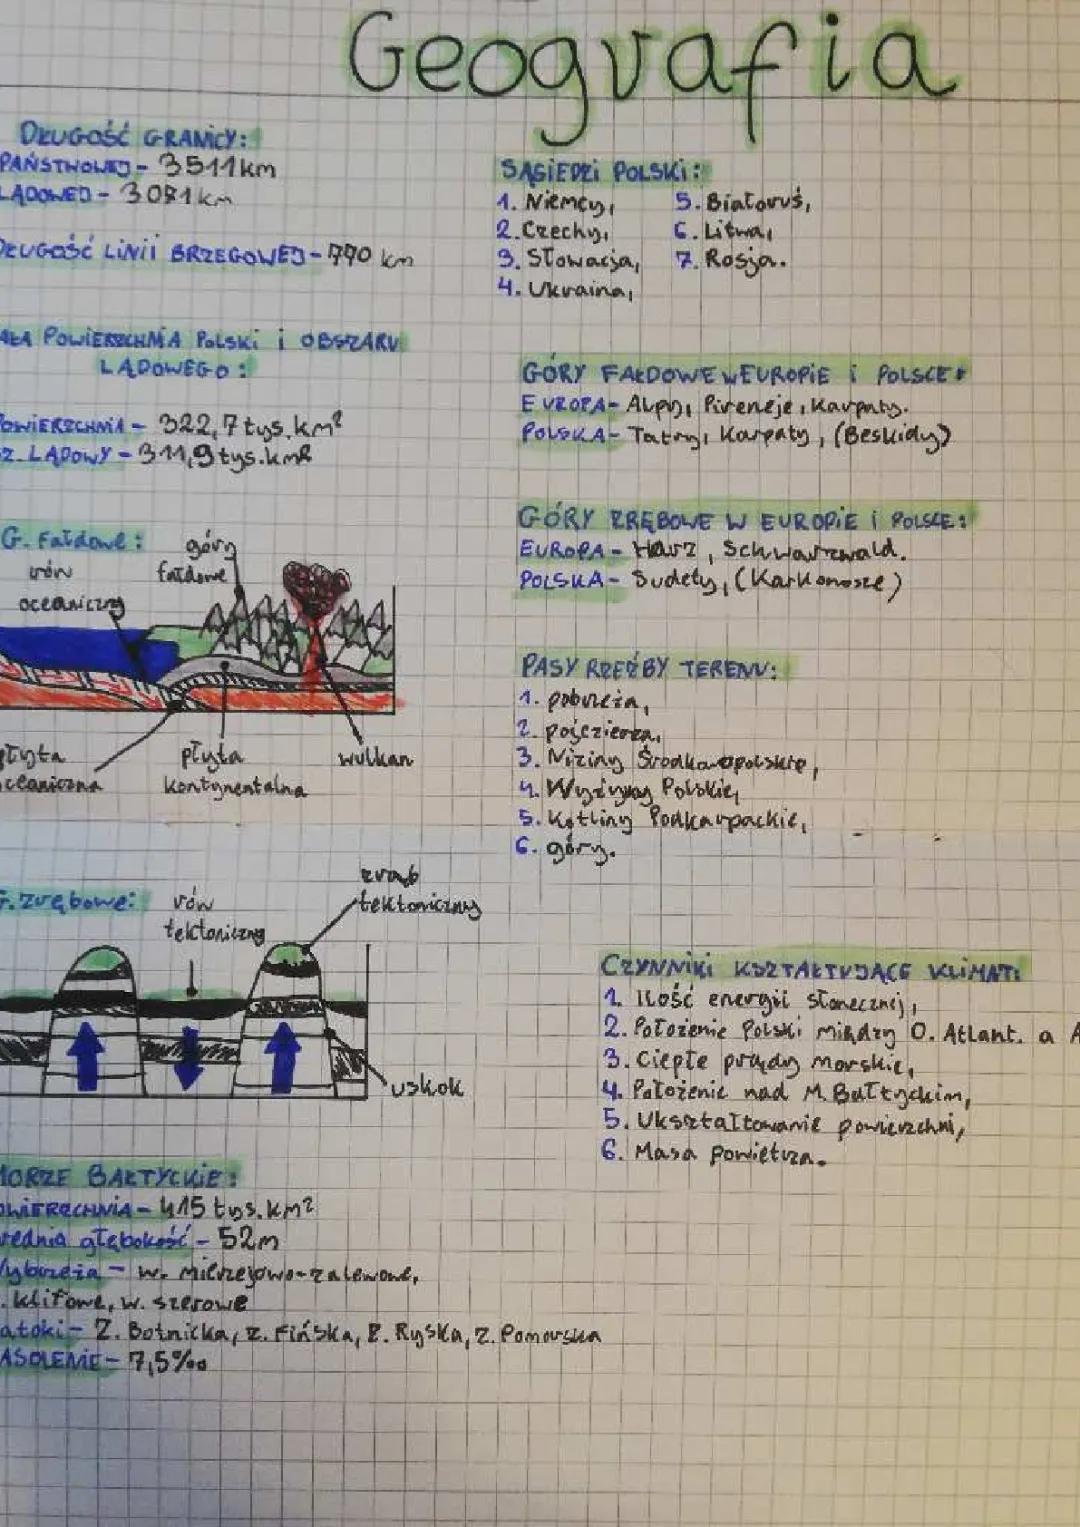 Geografia
DŁUGOŚĆ GRANICY:
PAŃSTWOWEJ - 3511km
LĄDOWEJ - 3071km
DŁUGOŚĆ LINII BRZEGOWEJ - 770 km
AŁA POWIERZCHNIA POLSKI i OBSZARU
LĄDOWEGO:
POWIERZCHNIA - 322,7 tys.km²
Z. LĄDOWY - 311,9 tys.km²
G. Fałdowe:
góry
fałdowe
rów
oceaniczny
płyta
oceaniczna
płyta
kontynentalna
wulkan
G. zrębowe:
rów
tektoniczny
zrąb
tektoniczny
uskok
MORZE BAŁTYCKIE:
POWIERZCHNIA - 415 tys.km²
średnia głębokość - 52m
Wybrzeża - w. mierzejowo-zalewowe,
. klifowe, w. szerowe
atoki - Z. Botnicka, Z. Fińska, Z. Ryska, Z. Pomorska
ZASOLENIE - 7,5‰
SĄSIEDZI POLSKI:
1. Niemcy,
2. Czechy,
3. Słowacja,
4. Ukraina,
5. Białoruś,
6. Litwa,
7. Rosja.
GÓRY FAŁDOWE W EUROPIE i POLSCE:
EUROPA - Alpy, Pireneje, Karpaty.
POLSKA - Tatry, Karpaty, (Beskidy)
GÓRY ZRĘBOWE W EUROPIE i POLSCE:
EUROPA - Harz, Schwarzwald.
POLSKA - Sudety, (Karkonosze)
PASY RZEŹBY TERENU:
1. pobrzeża,
2. pojezierza,
3. Niziny Środkowopolskie,
4. Wyżyny Polskie,
5. Kotliny Podkarpackie,
6. góry.
CZYNNIKI KSZTAŁTUJĄCE KLIMAT:
1. Ilość energii słonecznej,
2. Położenie Polski między O. Atlant. a A
3. Ciepłe prądy morskie,
4. Położenie nad M. Bałtyckim,
5. Ukształtowanie powierzchni,
6. Masa powietrza.